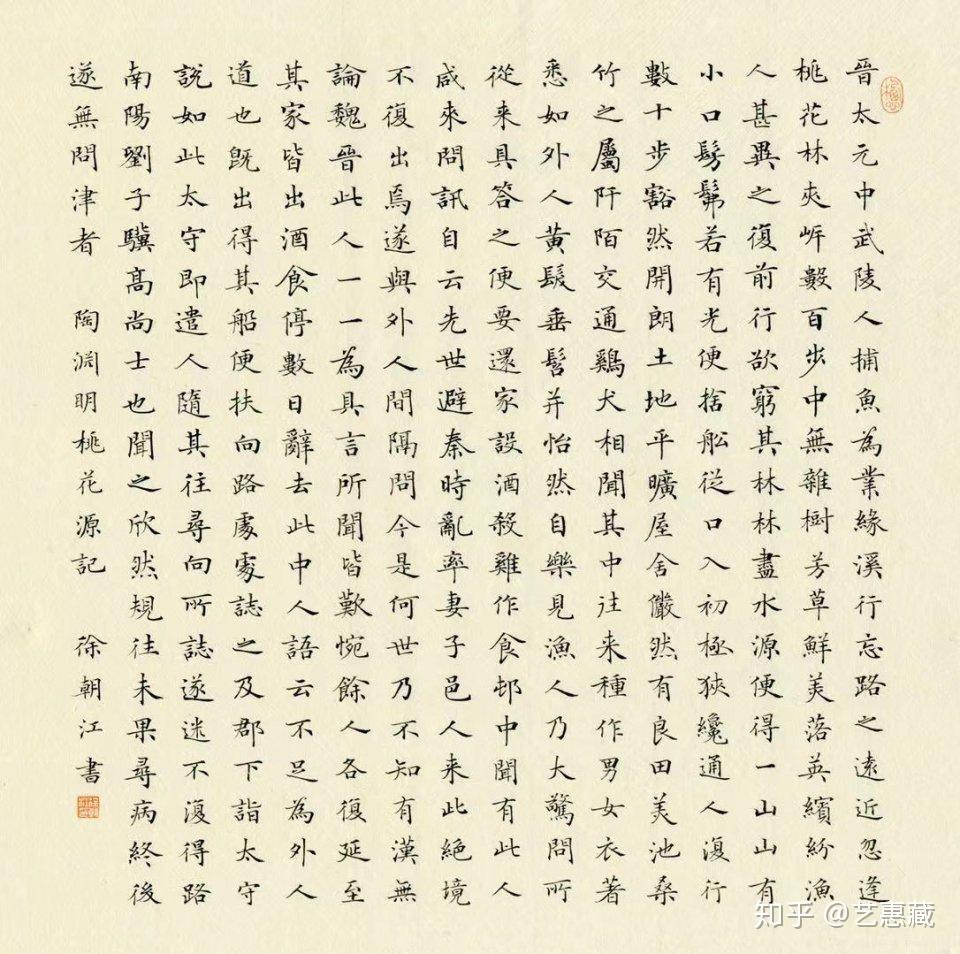 晉太元中武陵人捕魚為業緣溪行忘路之遠近忽逢
桃花林夾岸數百步中無雜樹芳草鮮美落英繽紛漁
人甚異之復前行欲窮其林林盡水源便得一山山有
小口髣髴若有光便捨舩從口入初極狹纔通人復行
數十步豁然開朗土地平曠屋舍儼然有良田美池桑
竹之屬阡陌交通鷄犬相聞其中往来種作男女衣著
悉如外人黃髮垂髫并怡然自樂見漁人乃大驚問所
從来具答之便要還家設酒殺雞作食邨中聞有此人
咸來問訊自云先世避秦時亂率妻子邑人来此絕境
不復出焉遂與外人間隔問今是何世乃不知有漢無
論魏晉此人一一為具言所聞皆歎惋餘人各復延至
其家皆出酒食停數日辭去此中人語云不足為外人
道也既出得其船便扶向路處處誌之及郡下詣太守
說如此太守即遣人隨其往尋向所誌遂迷不復得路
南陽劉子驥高尚士也聞之欣然規往未果尋病終後
遂無問津者 陶淵明桃花源記 徐朝江書
知乎 @艺惠藏